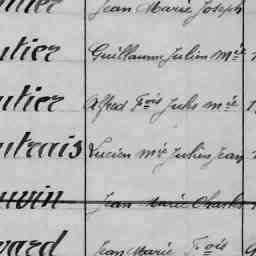 Jean Marie Joseph
utier Guillaume Julien Mie
utier Alfred Fois Jules Mie
utrais Lucien Mie Julien Jean
uvin Jean Marie Charles
vard Jean Marie Fois